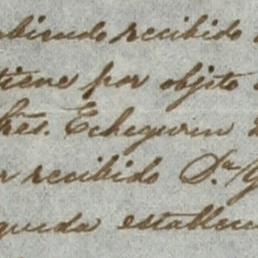 abiendo recibido
tiene por objeto
Sres. Echegurin
r recibido Dn. Y
queda establec